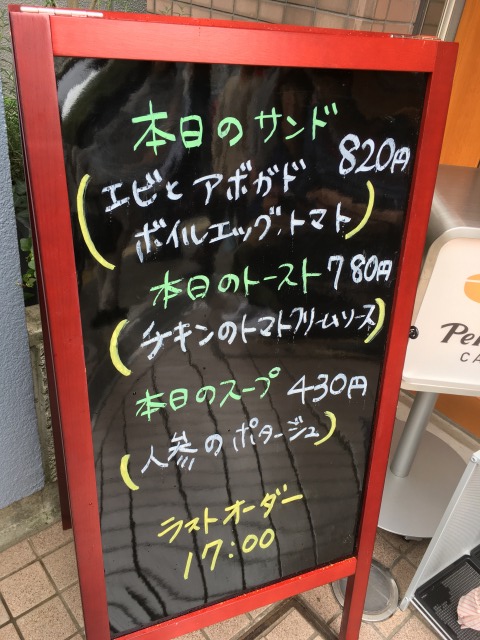 本日のサンド
820円
(エビとアボガド
ボイルエッグ,トマト)
本日のトースト 780円
(チキンのトマトクリームソース)
本日のスープ 430円
(人参のポタージュ)
ラストオーダー
17:00